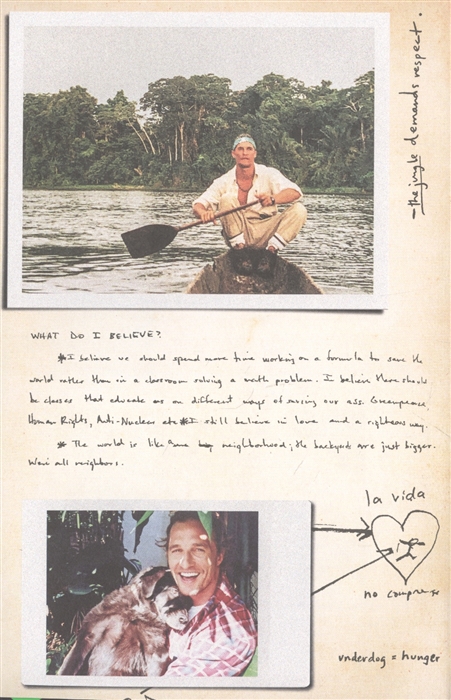 - the jungle demands respect.
WHAT DO I BELIEVE?
* I believe we should spend more time working on a formula to save the
world rather than in a classroom solving a math problem. I believe there should
be classes that educate us on different ways of saving our ass. Greenpeace,
Human Rights, Anti-Nuclear etc * I still believe in love and a righteous way.
* The world is like one neighborhood; the backyards are just bigger.
We're all neighbors.
la vida
no compromise
underdog = hunger